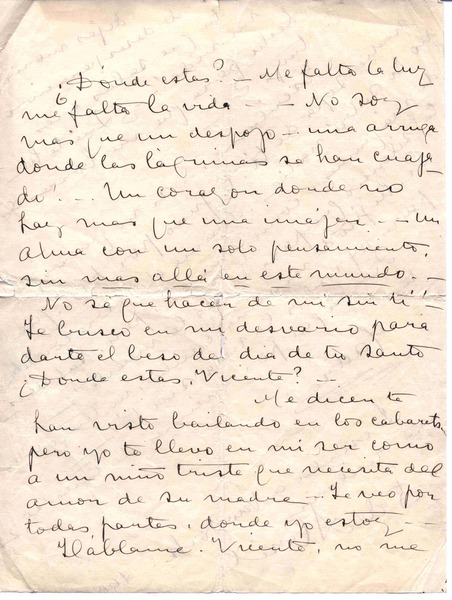 ¿Dónde estas? — Me falto la luz
me falto la vida — — No soy
mas que un despojo — una arruga
donde las lágrimas se han cuaja-
do — .. Un corazon donde no
hay mas que una imájen — — un
alma con un solo pensamiento,
sin mas allá en este mundo. —
No sé que hacer de mi sin ti!!
Te busco en mi desvario para
darte el beso del dia de tu santo
¿Donde estas, Vicente? —
Me dicen te
han visto bailando en los cabarets
pero yo te llevo en mi ser como
a un niño triste que necesita del
amor de su madre — Te veo por
todas partes, donde yo estoy —
Háblame. Vicente, no me